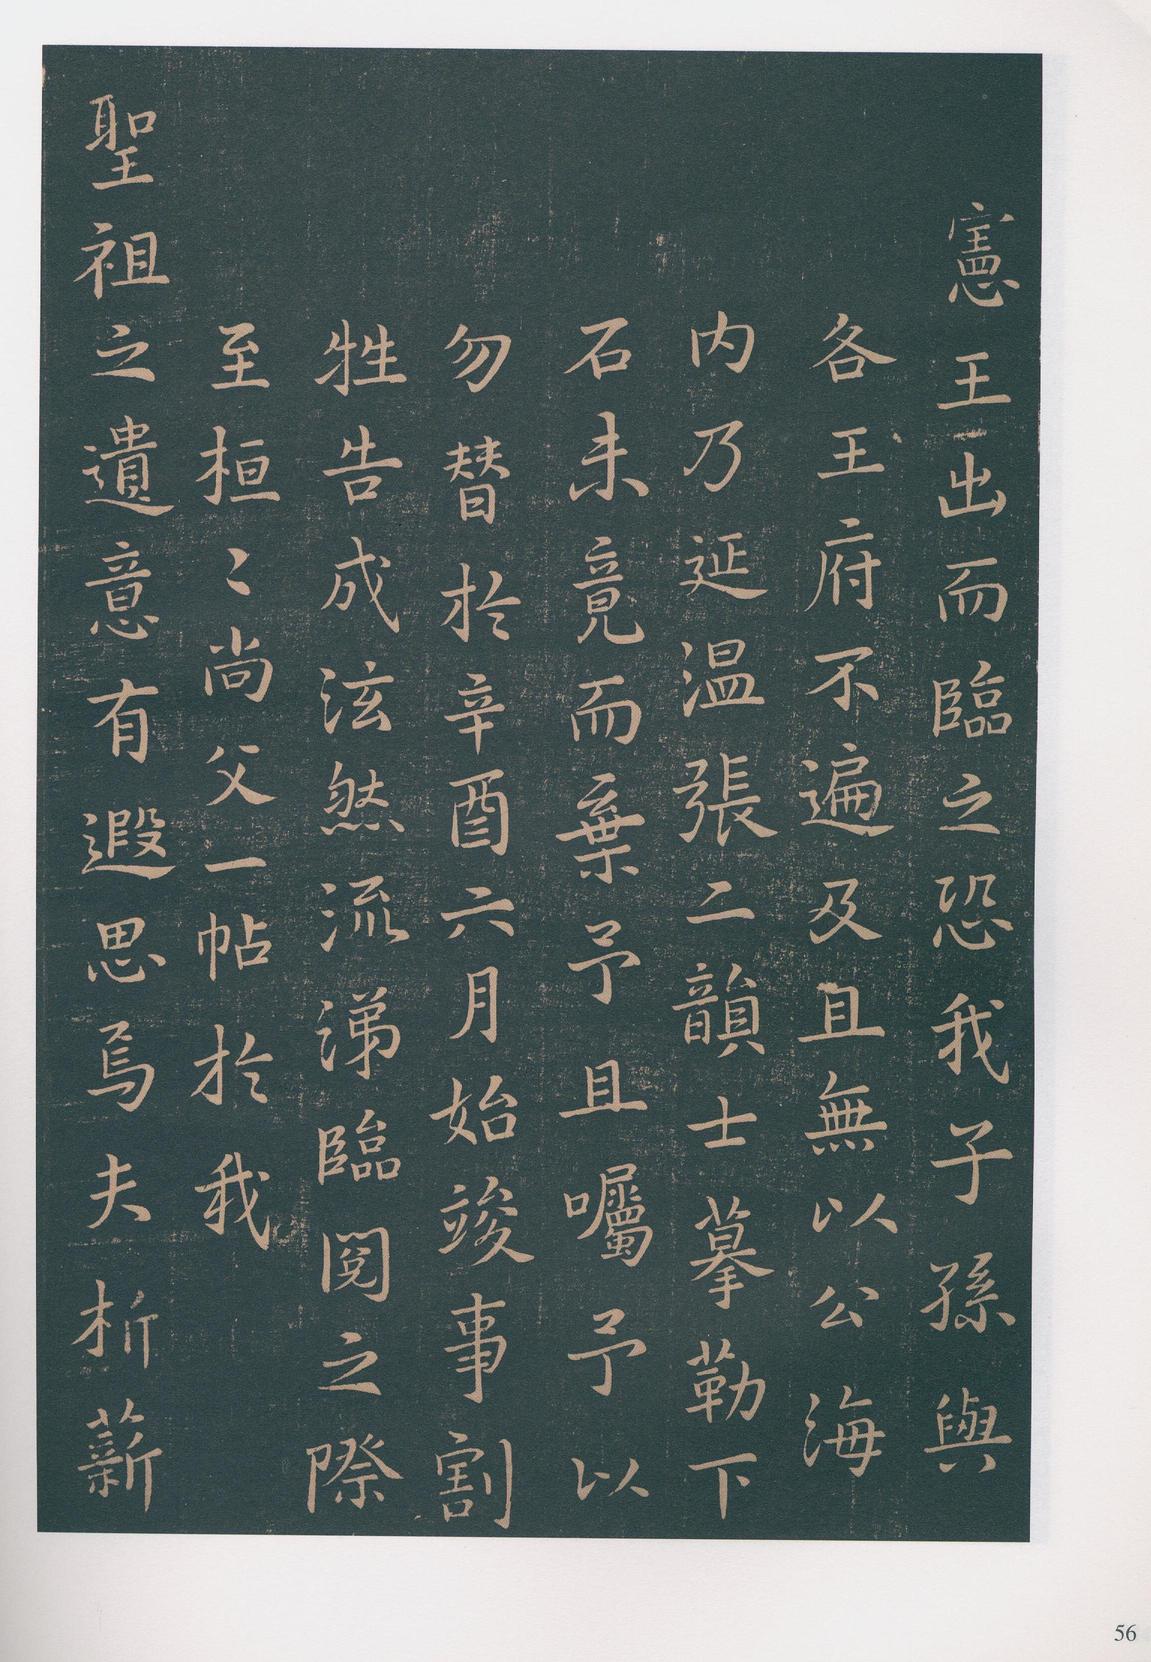 憲王出而臨之恐我子孫與
各王府不遍及且無以公海
内乃延温張二韻士摹勒下
石未竟而棄予且囑予以
勿替於辛酉六月始竣事割
牲告成泫然流涕臨閱之際
至桓〻尚父一帖於我
聖祖之遺意有遐思焉夫析薪
56